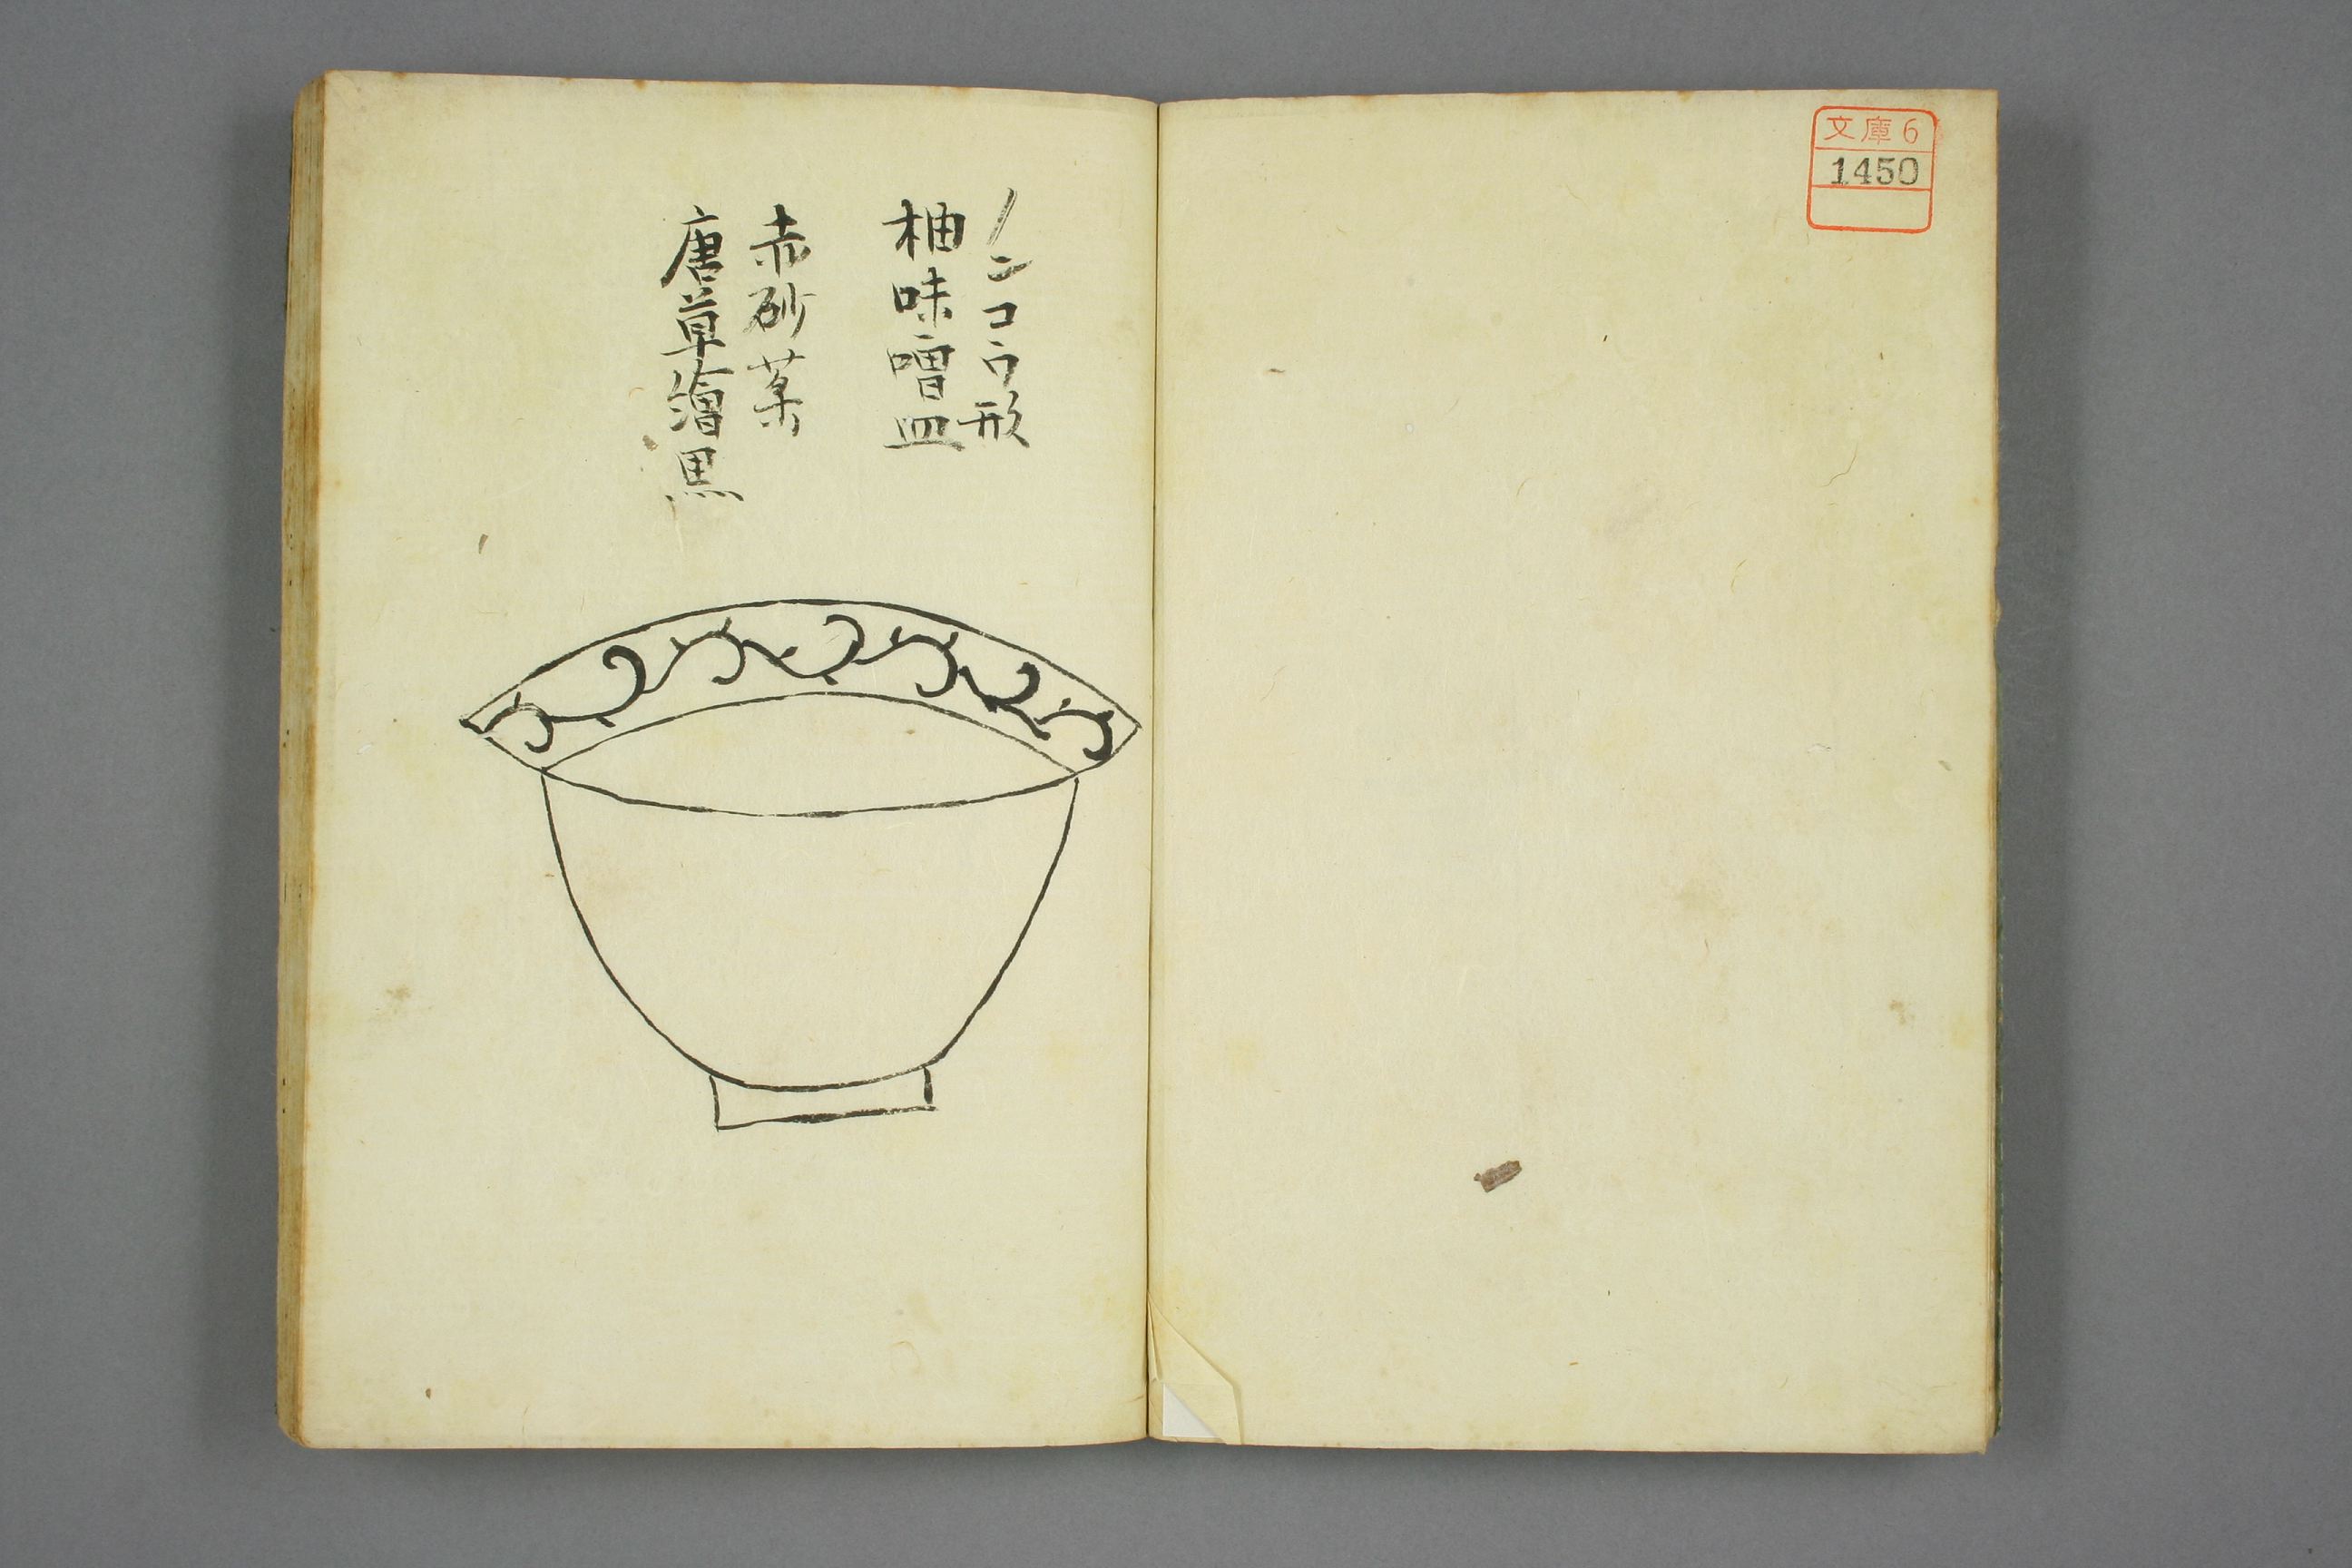 文庫6
1450
ノンコウ形
柚味噌皿
赤砂薬
唐草繪黒